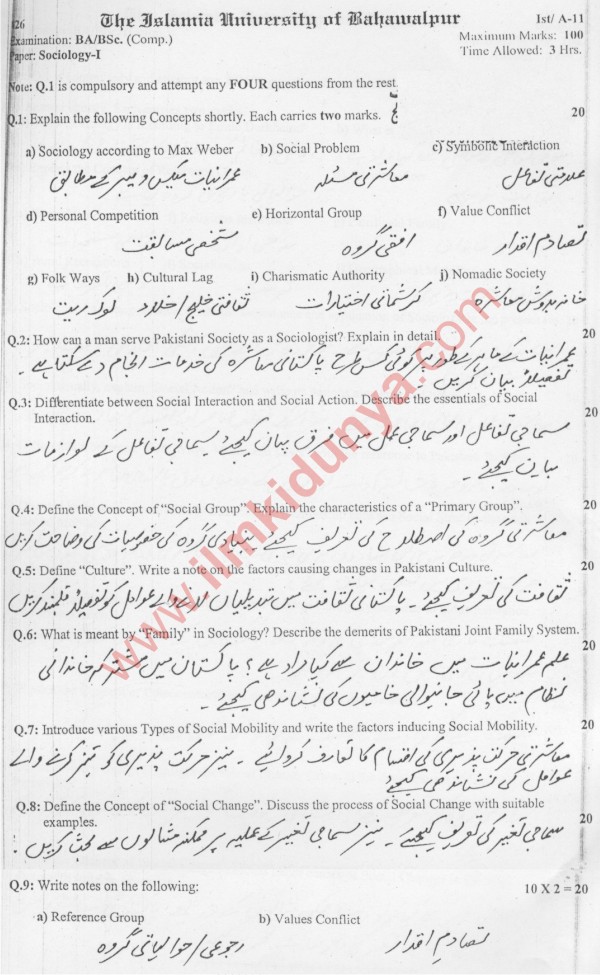 126 The Islamia University of Bahawalpur Ist/ A-11
Examination: BA/BSc. (Comp.) Maximum Marks: 100
Paper: Sociology-I Time Allowed: 3 Hrs.
Note: Q.1 is compulsory and attempt any FOUR questions from the rest.
Q.1: Explain the following Concepts shortly. Each carries two marks. 20
a) Sociology according to Max Weber b) Social Problem c) Symbolic Interaction
عمرانیات میکس ویبر کے مطابق معاشرتی مسئلہ علامتی تفاعل
d) Personal Competition e) Horizontal Group f) Value Conflict
شخصی مسابقت افقی گروہ تصادم اقدار
g) Folk Ways h) Cultural Lag i) Charismatic Authority j) Nomadic Society
لوک ریت ثقافتی خلیج / خلاء کرشماتی اختیارات خانہ بدوش معاشرہ
Q.2: How can a man serve Pakistani Society as a Sociologist? Explain in detail. 20
عمرانیات کے ماہر کے طور پر کوئی کس طرح پاکستانی معاشرہ کی خدمات انجام دے سکتا ہے۔
تفصیلاً بیان کریں۔
Q.3: Differentiate between Social Interaction and Social Action. Describe the essentials of Social 20
Interaction.
سماجی تفاعل اور سماجی عمل میں فرق بیان کیجئے۔ سماجی تفاعل کے لوازمات
بیان کیجئے۔
Q.4: Define the Concept of "Social Group". Explain the characteristics of a "Primary Group". 20
معاشرتی گروہ کی اصطلاح کی تعریف کیجئے۔ بنیادی گروہ کی خصوصیات کی وضاحت کریں
Q.5: Define "Culture". Write a note on the factors causing changes in Pakistani Culture. 20
ثقافت کی تعریف کیجئے۔ پاکستانی ثقافت میں تبدیلیاں لانے والے عوامل کو تفصیلاً قلمبند کریں
Q.6: What is meant by "Family" in Sociology? Describe the demerits of Pakistani Joint Family System. 20
علم عمرانیات میں خاندان سے کیا مراد ہے؟ پاکستان میں مشترکہ خاندانی
نظام میں پائی جانیوالی خامیوں کی نشاندھی کیجئے۔
Q.7: Introduce various Types of Social Mobility and write the factors inducing Social Mobility. 20
معاشرتی حرکت پذیری کی اقسام کا تعارف کروائیے۔ نیز حرکت پذیری کو تیز کرنے والے
عوامل کی نشاندھی کیجئے
Q.8: Define the Concept of "Social Change". Discuss the process of Social Change with suitable 20
examples.
سماجی تغیر کی تعریف کیجئے۔ نیز سماجی تغیر کے عملیہ پر ممکنہ مثالوں سے بحث کریں۔
Q.9: Write notes on the following: 10 X 2 = 20
a) Reference Group b) Values Conflict
رجوعی / حوالیاتی گروہ تصادم اقدار
www.ilmkidunya.com